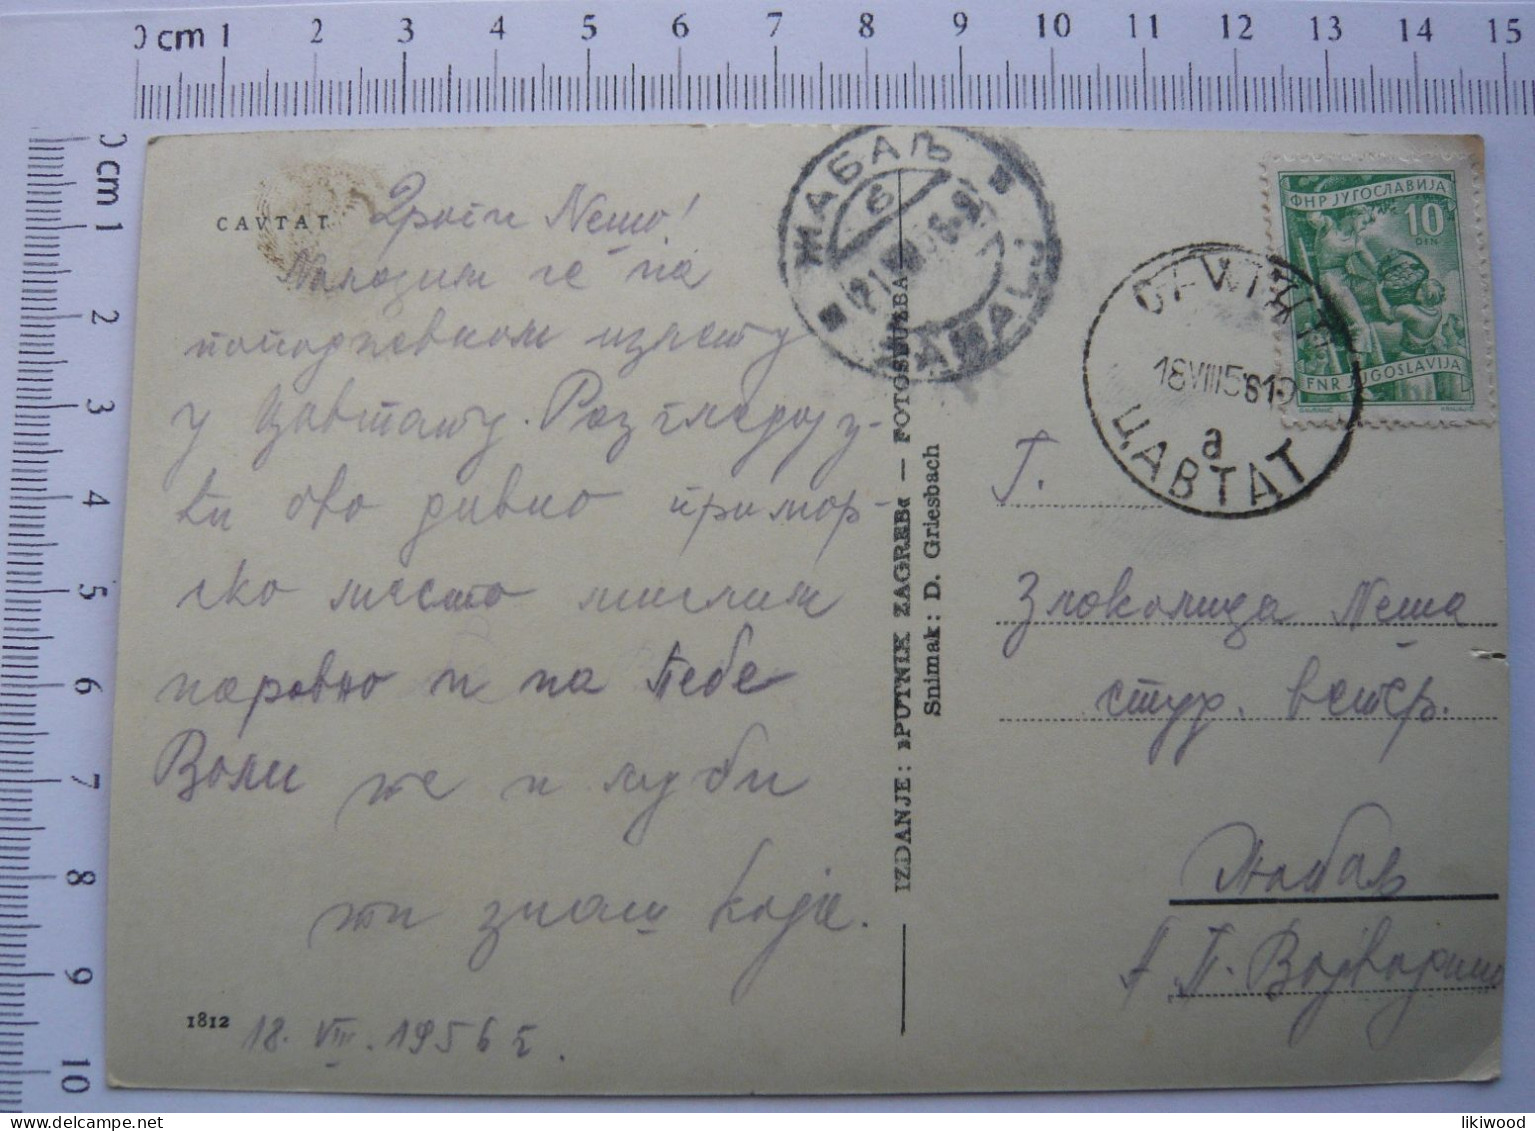 0 cm 1 2 3 4 5 6 7 8 9 10 11 12 13 14 15
0 cm 1 2 3 4 5 6 7 8 9 10
CAVTAT
Драги Нешо!
Налазим се на
попоршевном излету
у Цавтату. Разгледају-
ћи ово дивно примор-
ско место мислим
наравно и на Тебе
Воли те и љуби
ти знаш која.
1812
18. VIII. 1956 г.
IZDANJE: »PUTNIK ZAGREB« — FOTOSLUŽBA
Snimak: D. Griesbach
ЖАБАЉ
б
ŽABALJ
ФНР ЈУГОСЛАВИЈА
10
DIN
FNR JUGOSLAVIJA
CAVTAT
18 VIII 56 19
a
ЦАВТАТ
Г.
Злоколица Неша
студ. ветер.
Жабаљ
А. П. Војводина
likiwood